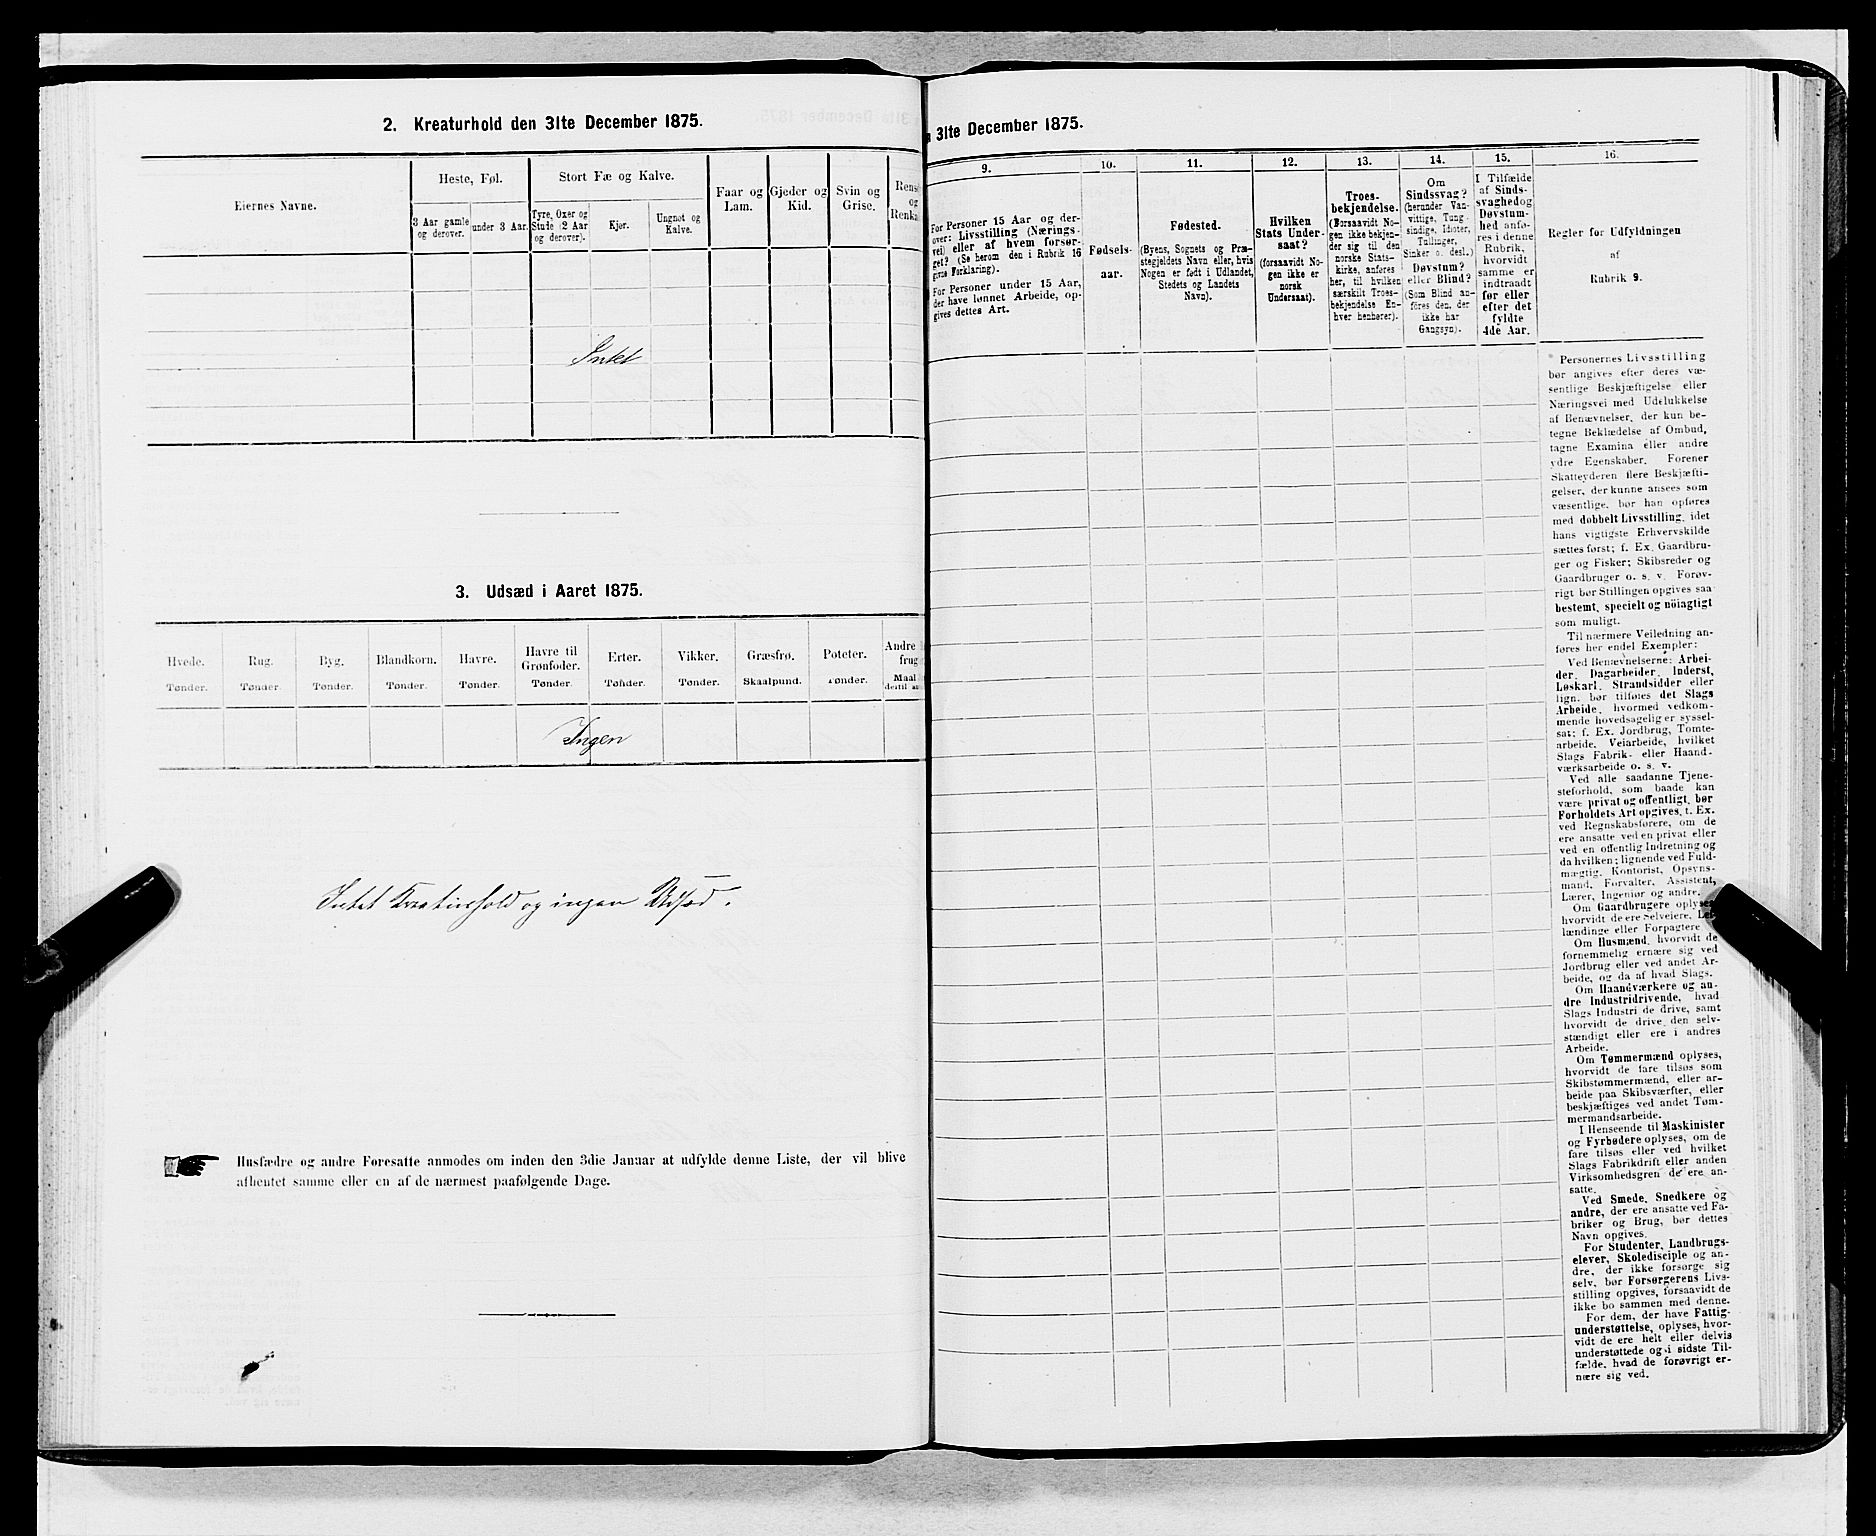 2. Kreaturhold den 31te December 1875.
Eiernes Navne.
Heste, Føl.
Stort Fæ og Kalve.
Faar og
Lam.
Gjeder og
Kid.
Svin og
Grise.
Rens
og
Renka
3 Aar gamle
og derover.
under 3 Aar.
Tyre, Oxer og
Stude (2 Aar
og derover).
Kjør.
Ungnøt og
Kalve.
Intet
3. Udsæd i Aaret 1875.
Hvede.
Tønder.
Rug.
Tønder.
Byg.
Tønder.
Blandkorn.
Tønder.
Havre.
Tønder.
Havre til
Grønfoder.
Tønder.
Erter.
Tønder.
Vikker.
Tønder.
Græsfrø.
Skaalpund.
Poteter.
Tønder.
Andre
frug
Maal
dertil
Ingen
Intet Kreaturhold og ingen Udsæd.
Husfædre og andre Foresatte anmodes om inden den 3die Januar at udfylde denne Liste, der vil blive
afhentet samme eller en af de nærmest paafølgende Dage.
31te December 1875.
9.
For Personer 15 Aar og der-
over: Livsstilling (Nærings-
vei) eller af hvem forsør-
get? (Se herom den i Rubrik 16
givne Forklaring).
For Personer under 15 Aar,
der have lønnet Arbeide, op-
gives dettes Art.
10.
Fødsels-
aar.
11.
Fødested.
(Byens, Sognets og Præ-
stegjeldets Navn eller, hvis
Nogen er født i Udlandet,
Stedets og Landets
Navn).
12.
Hvilken
Stats Under-
saat?
(forsaavidt No-
gen ikke er
norsk
Undersaat).
13.
Troes-
bekjendelse.
(Forsaavidt No-
gen ikke bekjen-
der sig til den
norske Stats-
kirke, anføres
her, til hvilken
særskilt Troes-
bekjendelse En-
hver henhører).
14.
Om
Sindssvag?
(herunder Van-
vittige, Tung-
sindige, Idioter,
Tullinger,
Sinker o. desl.)
Døvstum?
eller Blind?
(Som Blind an-
føres den, der
ikke har
Gangsyn).
15.
I Tilfælde
af Sinds-
svaghed og
Døvstum-
hed anfø-
res i denne
Rubrik,
hvorvidt
samme er
indtraadt
før eller
efter det
fyldte
4de Aar.
16.
Regler for Udfyldningen
af
Rubrik 9.
Personernes Livsstilling
bør angives efter deres væ-
sentlige Beskjæftigelse eller
Næringsvei med Udelukkelse
af Benævnelser, der kun be-
tegne Beklædelse af Ombud,
tagne Examina eller andre
ydre Egenskaber. Forener
Skatteyderen flere Beskjæfti-
gelser, der kunne ansees som
væsentlige, bør han opføres
med dobbelt Livsstilling, idet
hans vigtigste Erhvervskilde
sættes først; f. Ex. Gaardbru-
ger og Fisker; Skibsreder og
Gaardbruger o. s. v. Forøv-
rigt bør Stillingen opgives saa
bestemt, specielt og nöiagtigt
som muligt.
Til nærmere Veiledning an-
føres her endel Exempler:
Ved Benævnelserne: Arbei-
der, Dagarbeider, Inderst,
Løskarl, Strandsidder eller
lign. bør tilføies det Slags
Arbeide, hvormed vedkom-
mende hovedsagelig er syssel-
sat; f. Ex. Jordbrug, Tomte-
arbeide, Veiarbeide, hvilket
Slags Fabrik- eller Haand-
værksarbeide o. s. v.
Ved alle saadanne Tjene-
steforhold, som baade kan
være privat og offentligt, bør
Forholdets Art opgives, t. Ex.
ved Regnskabsførere, om de
ere ansatte ved en privat eller
ved en offentlig Indretning og
da hvilken; lignende ved Fuld-
mægtig, Kontorist, Opsyns-
mand, Forvalter, Assistent,
Lærer, Ingeniør og andre.
Om Gaardbrugere oplyses
hvorvidt de ere Selveiere, Lei-
lændinge eller Forpagtere
Om Husmænd, hvorvidt de
fornemmelig ernære sig ved
Jordbrug eller ved andet Ar-
beide, og da af hvad Slags.
Om Haandværkere og an-
dre Industridrivende, hvad
Slags Industri de drive, samt
hvorvidt de drive den selv-
stændigt eller ere i andres
Arbeide.
Om Tømmermænd oplyses,
hvorvidt de fare tilsøs som
Skibstømmermænd, eller ar-
beide paa Skibsværfter, eller
beskjæftiges ved andet Tøm-
mermandsarbeide.
I Henseende til Maskinister
og Fyrbødere oplyses, om de
fare tilsøs eller ved hvilket
Slags Fabrikdrift eller anden
Virksomhedsgren de ere an-
satte.
Ved Smede, Snedkere og
andre, der ere ansatte ved Fa-
briker og Brug, bør dettes
Navn opgives.
For Studenter, Landbrugs-
elever, Skoledisciple og an-
dre, der ikke forsørge sig
selv, bør Forsørgerens Livs-
stilling opgives, forsaavidt de
ikke bo sammen med denne.
For dem, der have Fattig-
understøttelse, oplyses, hvor-
vidt de ere helt eller delvis
understøttede og i sidste Til-
fælde, hvad de forøvrigt er-
nære sig ved.